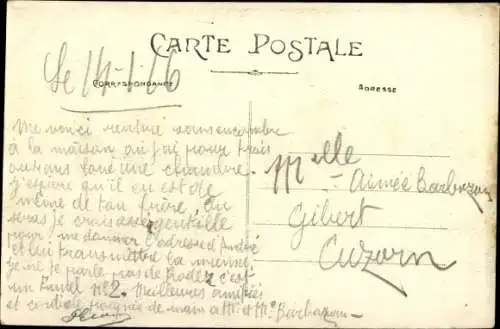 CARTE POSTALE
CORRESPONDANCE
ADRESSE
Le 14-1-16
Me voici rentré sans encombre
à la maison où j'ai pour trais
ans loué une chambre.
J'espère qu'il en est de
même de ton frère. Tu
seras je crois assez gentille
pour me donner l'adresse d'André
et lui transmettre la mienne.
Je ne parle pas de Rodez c'est
un N° 2. Meilleures amitiés
et cordiale poignée de main à Mr et Me Barbazan
Melle
Aimée Barbazan
Gibert
Cuzorn